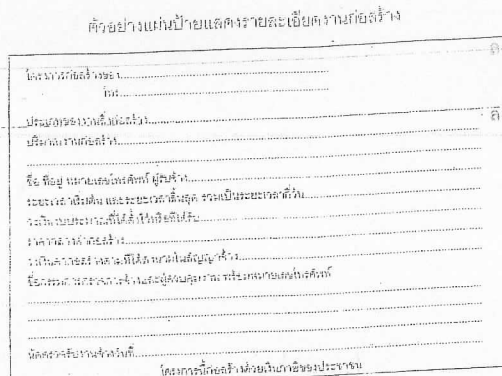 ตัวอย่างแผ่นป้ายแสดงรายละเอียดงานก่อสร้าง
โครงการก่อสร้างของ
โทร
ประเภทของงานสิ่งก่อสร้าง
ปริมาณงานก่อสร้าง
ชื่อ ที่อยู่ หมายเลขโทรศัพท์ ผู้รับจ้าง
ระยะเวลาเริ่มต้น และระยะเวลาสิ้นสุด รวมเป็นระยะเวลากี่วัน
วงเงินงบประมาณที่ได้ตั้งไว้หรือที่ได้รับ
ราคากลางค่าก่อสร้าง
วงเงินค่าก่อสร้างตามที่ได้ลงนามในสัญญาจ้าง
ชื่อกรรมการตรวจการจ้างและผู้ควบคุมงาน พร้อมหมายเลขโทรศัพท์
นัดตรวจรับงานจ้างวันที่
โครงการนี้ก่อสร้างด้วยเงินภาษีของประชาชน